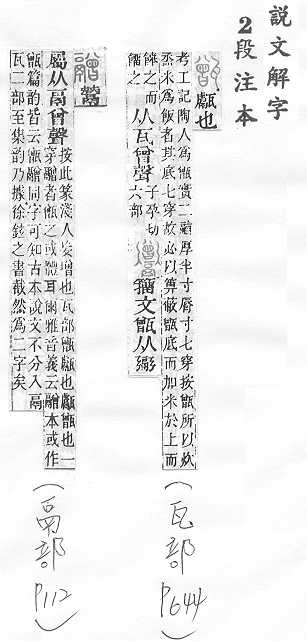 說文解字
2段注本
甗也
考工記陶人為甑實二鬴厚半寸脣寸七穿按甑所以炊
烝米為飯者其底七穿故必以箅蔽甑底而加米於上而
餴之而餾之 从瓦曾聲 子孕切六部 籒文甑从䰜
(瓦部 P644)
鬵
屬从鬲曾聲 按此篆淺人妄增也瓦部甑甗也甗甑也一
穿䰝者甑之或體耳爾雅音義云䰝本或作
甑篇韵皆云甑䰝同字可知古本說文不分入鬲
瓦二部至集韵乃據徐鉉之書截然為二字矣
(鬲部 P112)